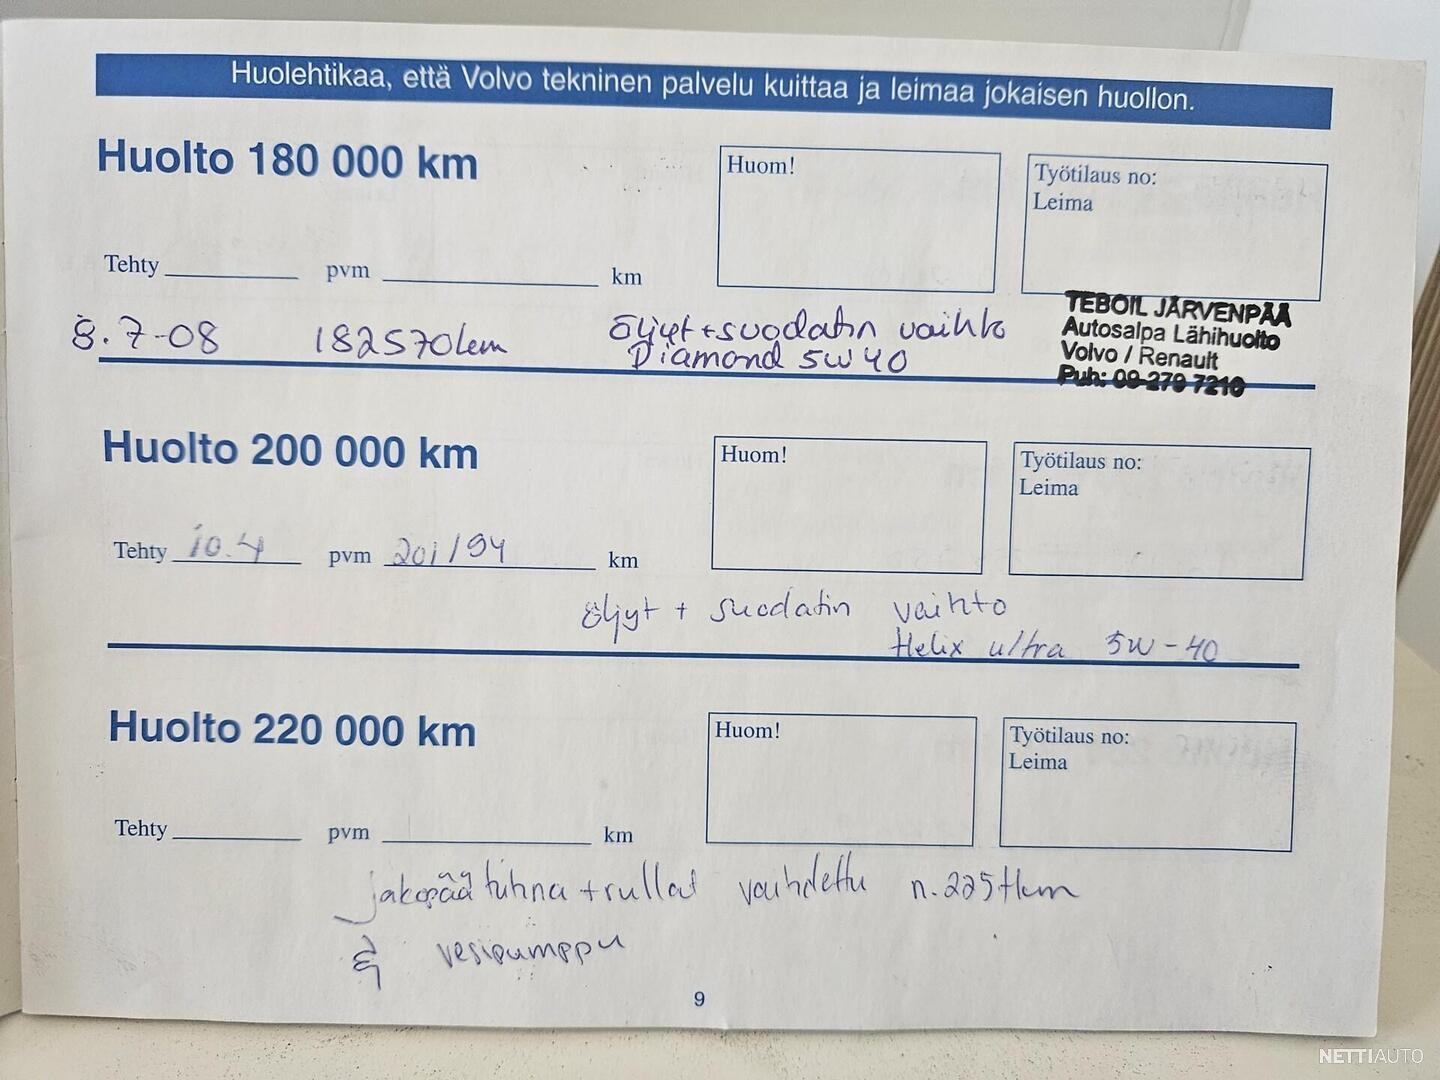 Huolehtikaa, että Volvo tekninen palvelu kuittaa ja leimaa jokaisen huollon.
Huolto 180 000 km
Huom!
Työtilaus no:
Leima
Tehty pvm km
8.7-08 182570km öljyt+suodatin vaihto
Diamond 5w40
TEBOIL JÄRVENPÄÄ
Autosalpa Lähihuolto
Volvo / Renault
Puh: 09-279 7210
Huolto 200 000 km
Huom!
Työtilaus no:
Leima
Tehty 10.4 pvm 201/94 km
öljyt + suodatin vaihto
Helix ultra 5w-40
Huolto 220 000 km
Huom!
Työtilaus no:
Leima
Tehty pvm km
jakopää hihna + rullat vaihdettu n.225tkm
& vesipumppu
9
NETTIAUTO